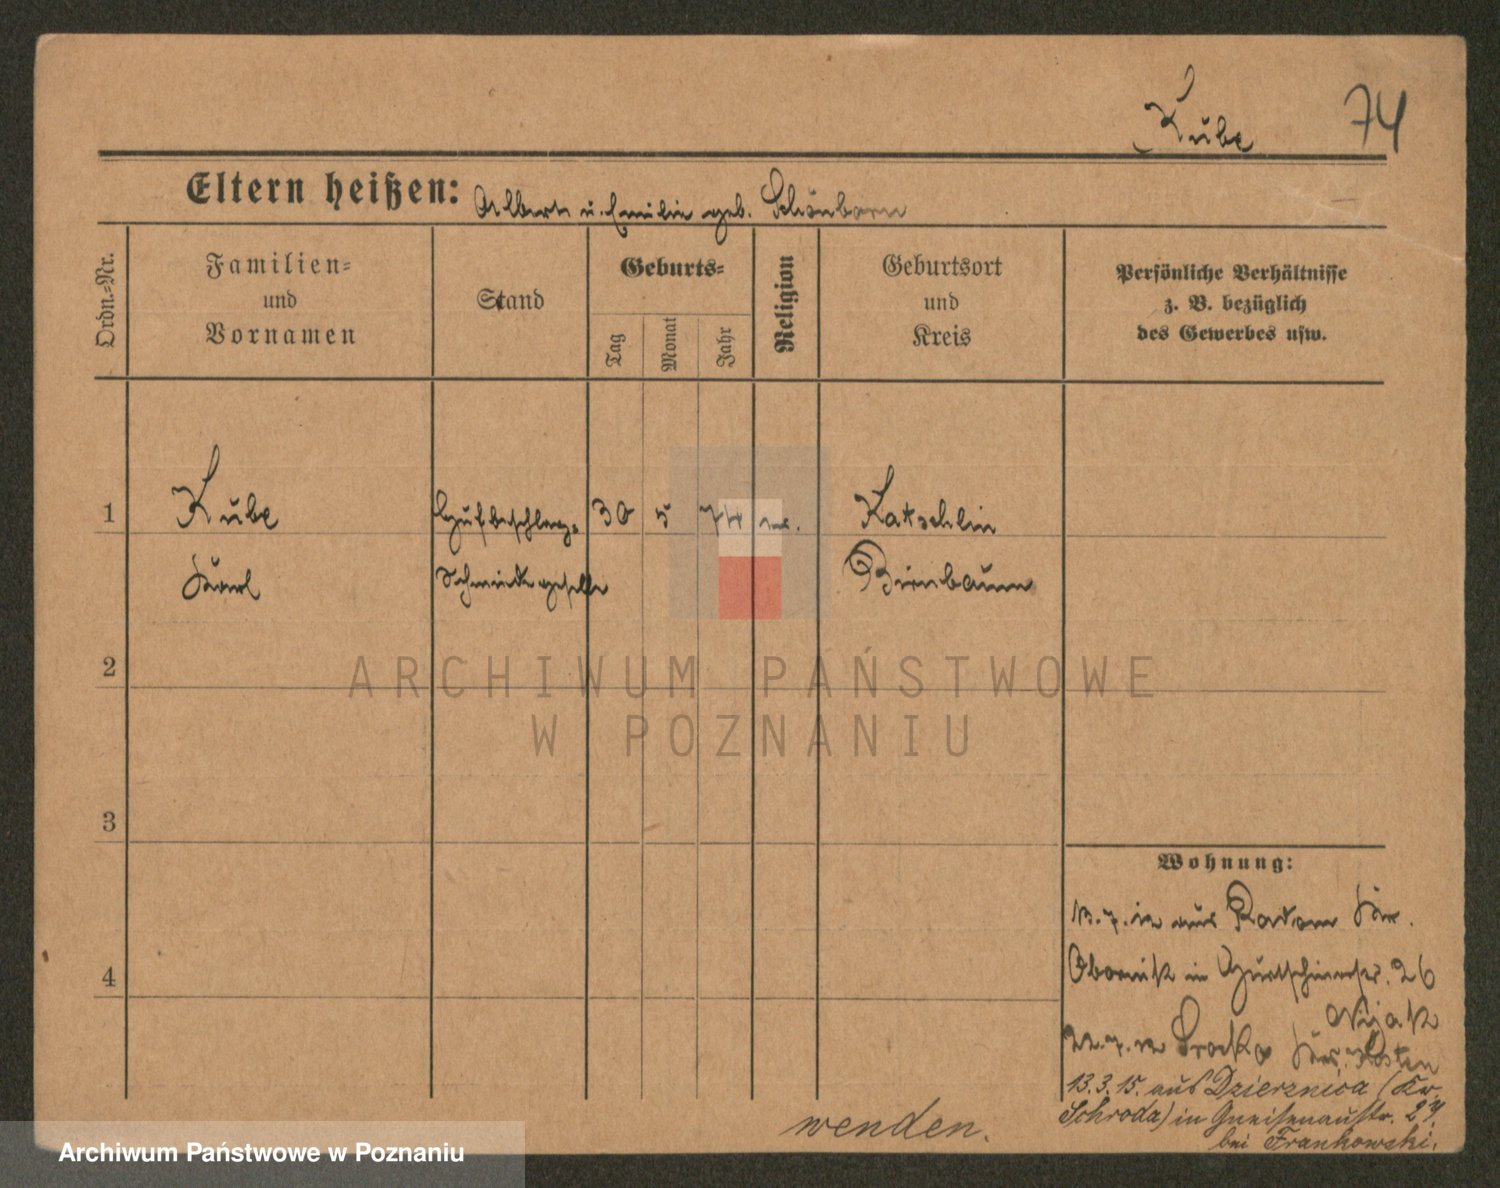 Kube 74
Eltern heißen: Albert u. Emilie geb. Schönborn
Ordn.=Nr.
Familien=
und
Vornamen
Stand
Geburts=
Tag
Monat
Jahr
Religion
Geburtsort
und
Kreis
Persönliche Verhältnisse
z. B. bezüglich
des Gewerbes usw.
1 Kube Hufbeschlag= 30 5 74 ev. Katschlin
Karl Schmiedegeselle Birnbaum
2
ARCHIWUM PAŃSTWOWE
W POZNANIU
3
Wohnung:
13.7.12 aus Radom Kr.
4
Obornik in Gurtschinerstr. 26
Nijak
22.7.12 Kr. Kosten
13.3.15. aus Dziersznica (Kr.
Schroda) in Gneisenaustr. 2
bei Frankowski.
wenden.
Archiwum Państwowe w Poznaniu